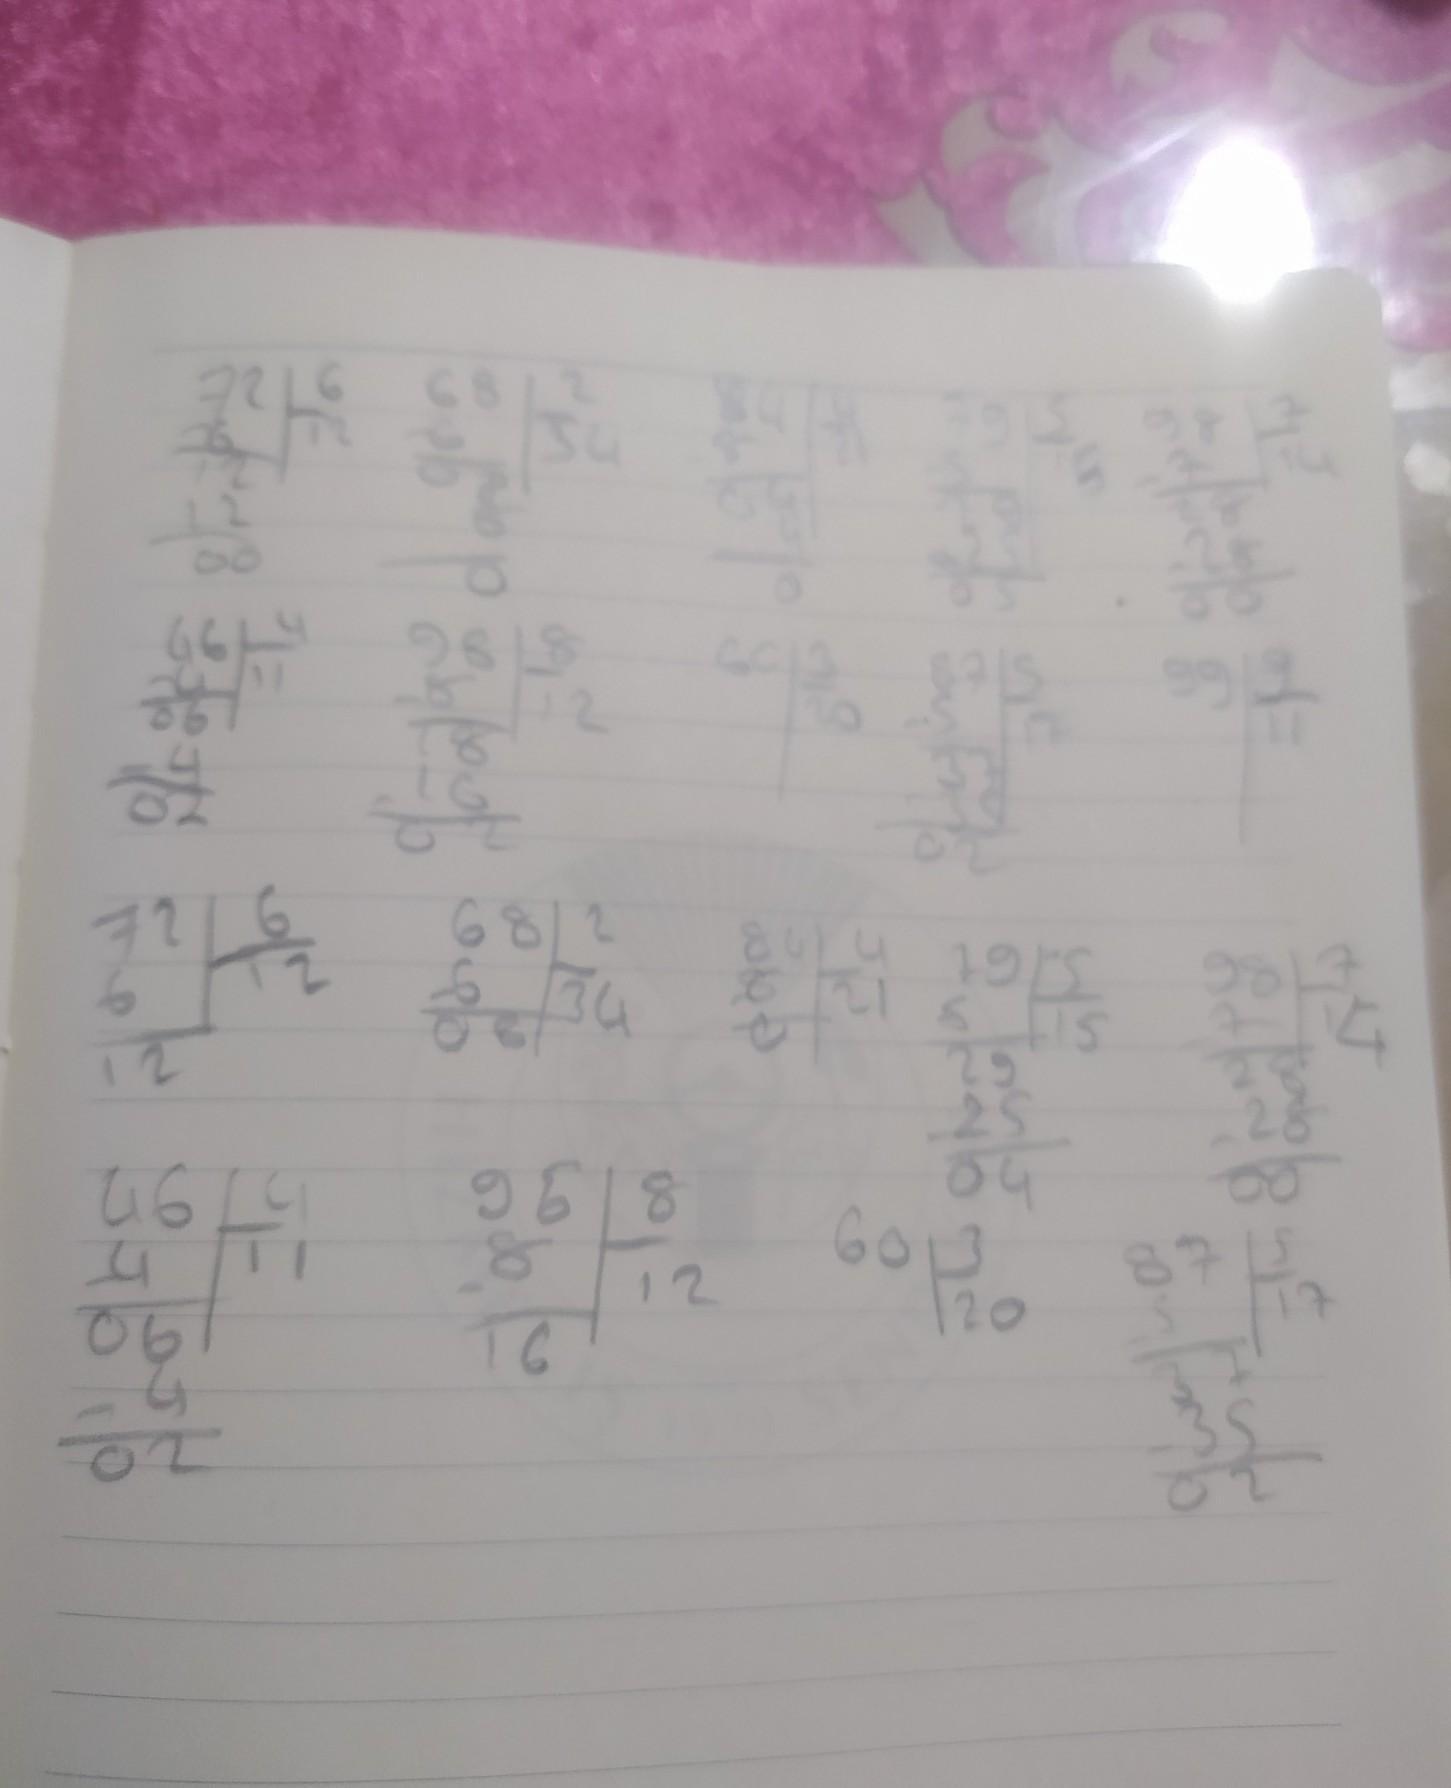 72 6 68 2 84 4 79 5 98 7
6 12 6 34 8 5 15 7 14
12 0 8 28
12 8 25 28
00 0 0 0 00
46 4 98 8 60 3 87 5 99 9
4 11 8 12 20 5 17 11
06 18
4 16
02 02 02
72 6 68 2 84 4 79 5 98 7
6 12 6 34 8 21 5 15 7 14
12 08 0 29 28
25 28
04 00
46 4 96 8 60 3 87 5
4 11 8 12 20 5 17
06 16 37
4 35
02 02